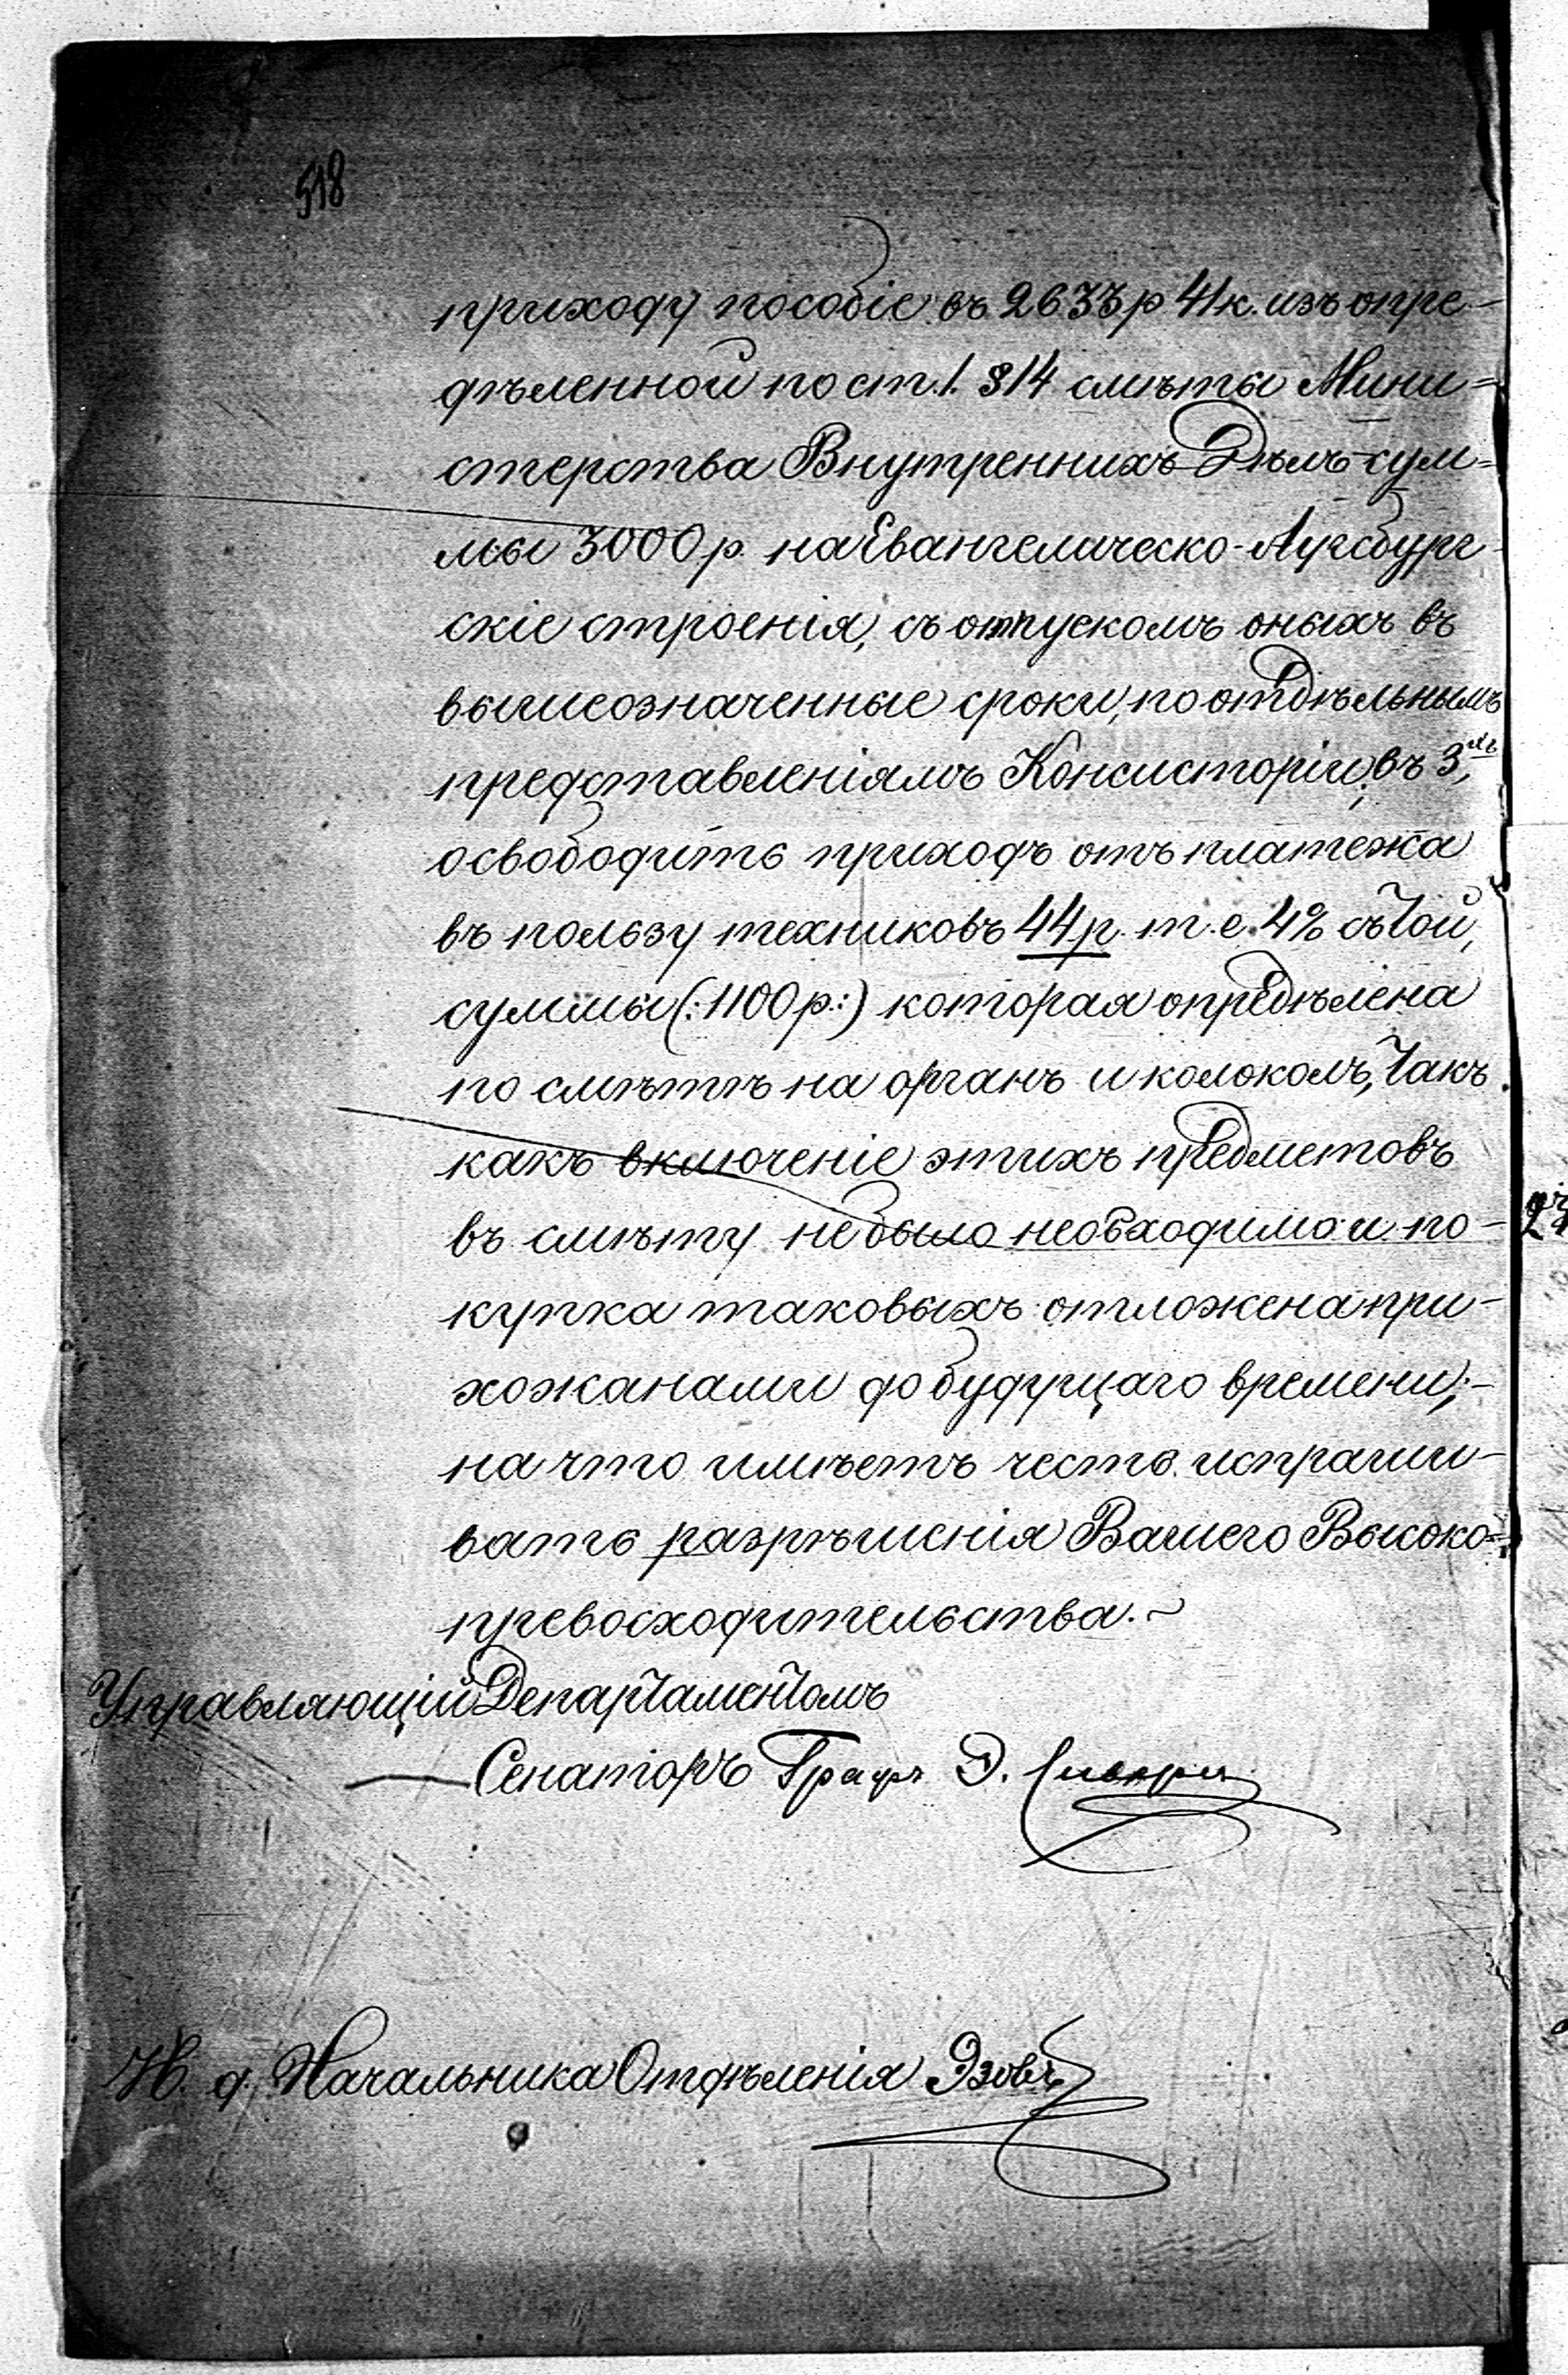 518
приходу пособіе въ 2633 р 41 к. изъ опре-
дѣленной по ст. 1. § 14 смѣты Мини-
стерства Внутреннихъ Дѣлъ сум-
мы 3000 р. на Евангелическо-Аугсбург-
скіе строенія, съ отпускомъ оныхъ въ
вышеозначенные сроки, по отдѣльнымъ
представленіямъ Консисторіи; въ 3хъ,
освободить приходъ отъ платежа
въ пользу техниковъ 44 р. т. е. 4% съ той,
суммы (: 1100 р. :) которая опредѣлена
по смѣтѣ на органъ и колоколъ, такъ
какъ включеніе этихъ предметовъ
въ смѣту не было необходимо и по-
купка таковыхъ отложена при-
хожанами до будущаго времени; -
на что имѣетъ честь испраши-
вать разрѣшенія Вашего Высоко-
превосходительства. ~
Управляющій Департаментомъ
Сенаторъ Графъ Э. Сиверсъ
И. д. Начальника Отдѣленія Эзовъ